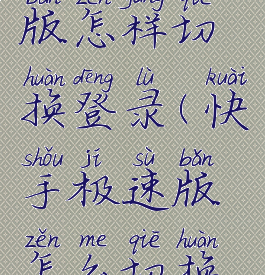 版怎样切
huàn dēng lù kuài
换登录(快
shǒu jí sù bǎn
手极速版
zěn me qiē huàn
怎么切换